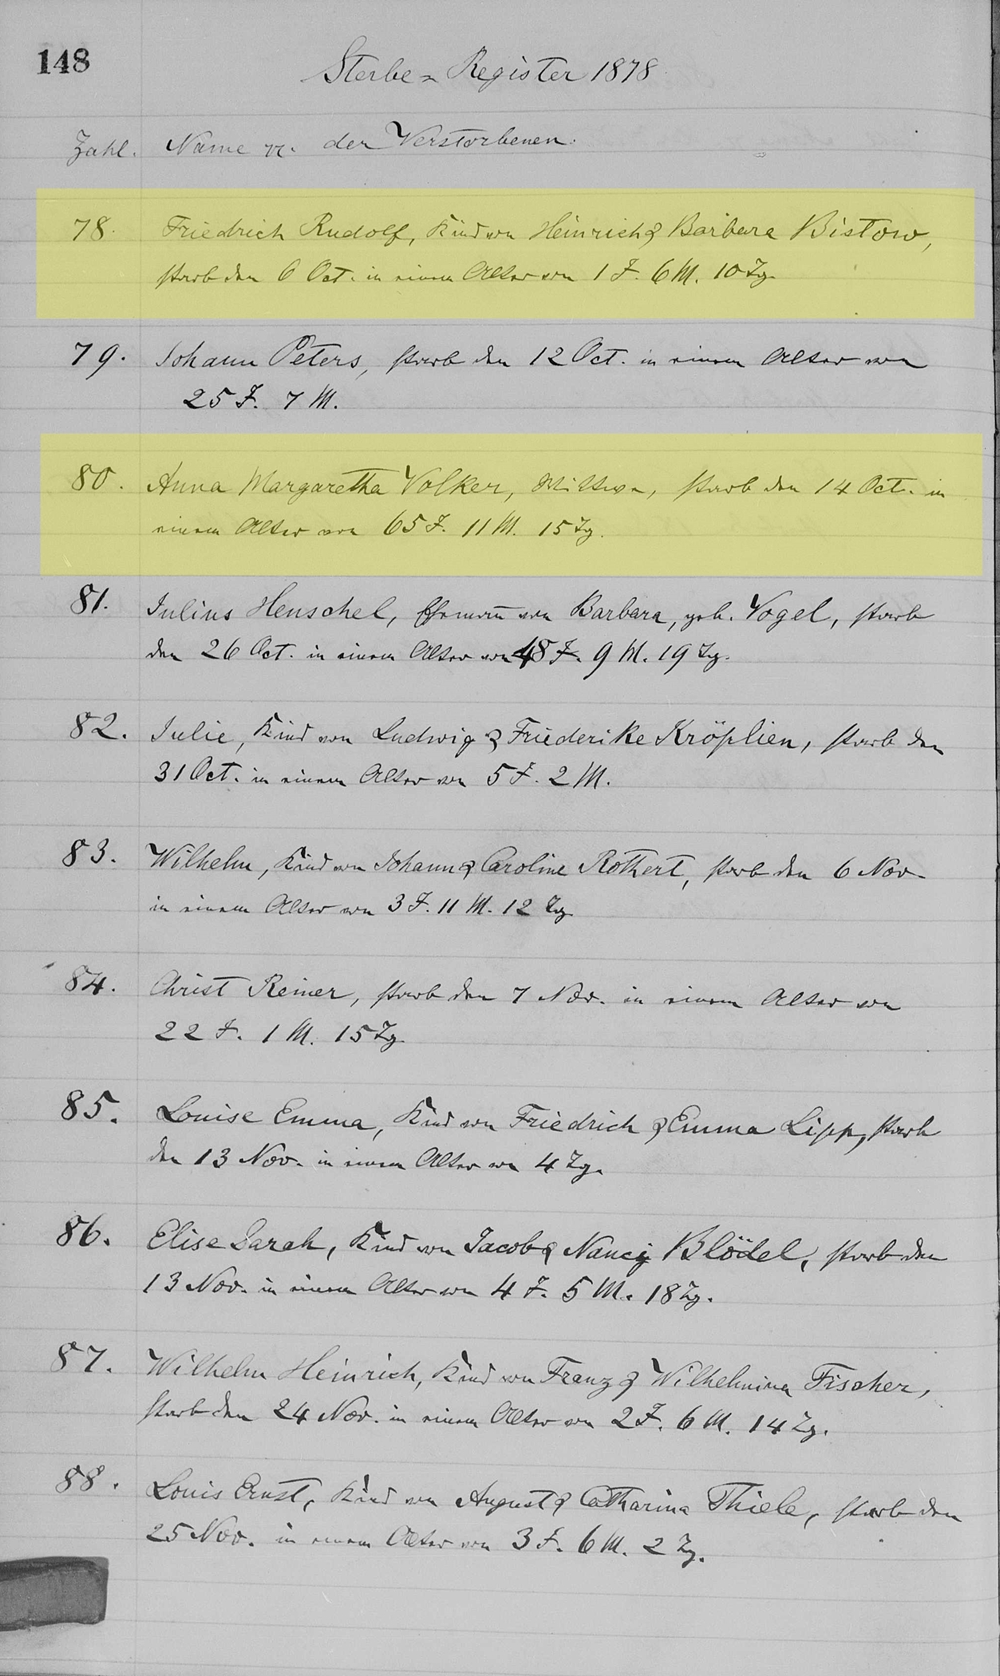 148
Sterbe-Register 1878
Zahl. Name etc. der Verstorbenen.
78. Friedrich Rudolf, Kind von Heinrich & Barbara Bistow,
starb den 6 Oct. in einem Alter von 1 J. 6 M. 10 Tg.
79. Johann Peters, starb den 12 Oct. in einem Alter von
25 J. 7 M.
80. Anna Margaretha Volker, Wittwe, starb den 14 Oct. in
einem Alter von 65 J. 11 M. 15 Tg.
81. Julius Henschel, Ehemann von Barbara, geb. Vogel, starb
den 26 Oct. in einem Alter von 48 J. 9 M. 19 Tg.
82. Julie, Kind von Ludwig & Friederike Kröplien, starb den
31 Oct. in einem Alter von 5 J. 2 M.
83. Wilhelm, Kind von Johann & Caroline Rothert, starb den 6 Nov.
in einem Alter von 3 J. 11 M. 12 Tg.
84. Christ Reiner, starb den 7 Nov. in einem Alter von
22 J. 1 M. 15 Tg.
85. Louise Emma, Kind von Friedrich & Emma Lipp, starb
den 13 Nov. in einem Alter von 4 Tg.
86. Elise Sarah, Kind von Jacob & Nancy Blödel, starb den
13 Nov. in einem Alter von 4 J. 5 M. 18 Tg.
87. Wilhelm Heinrich, Kind von Franz & Wilhelmina Fischer,
starb den 24 Nov. in einem Alter von 2 J. 6 M. 14 Tg.
88. Louis Ernst, Kind von August & Catharina Thiele, starb den
25 Nov. in einem Alter von 3 J. 6 M. 2 Tg.